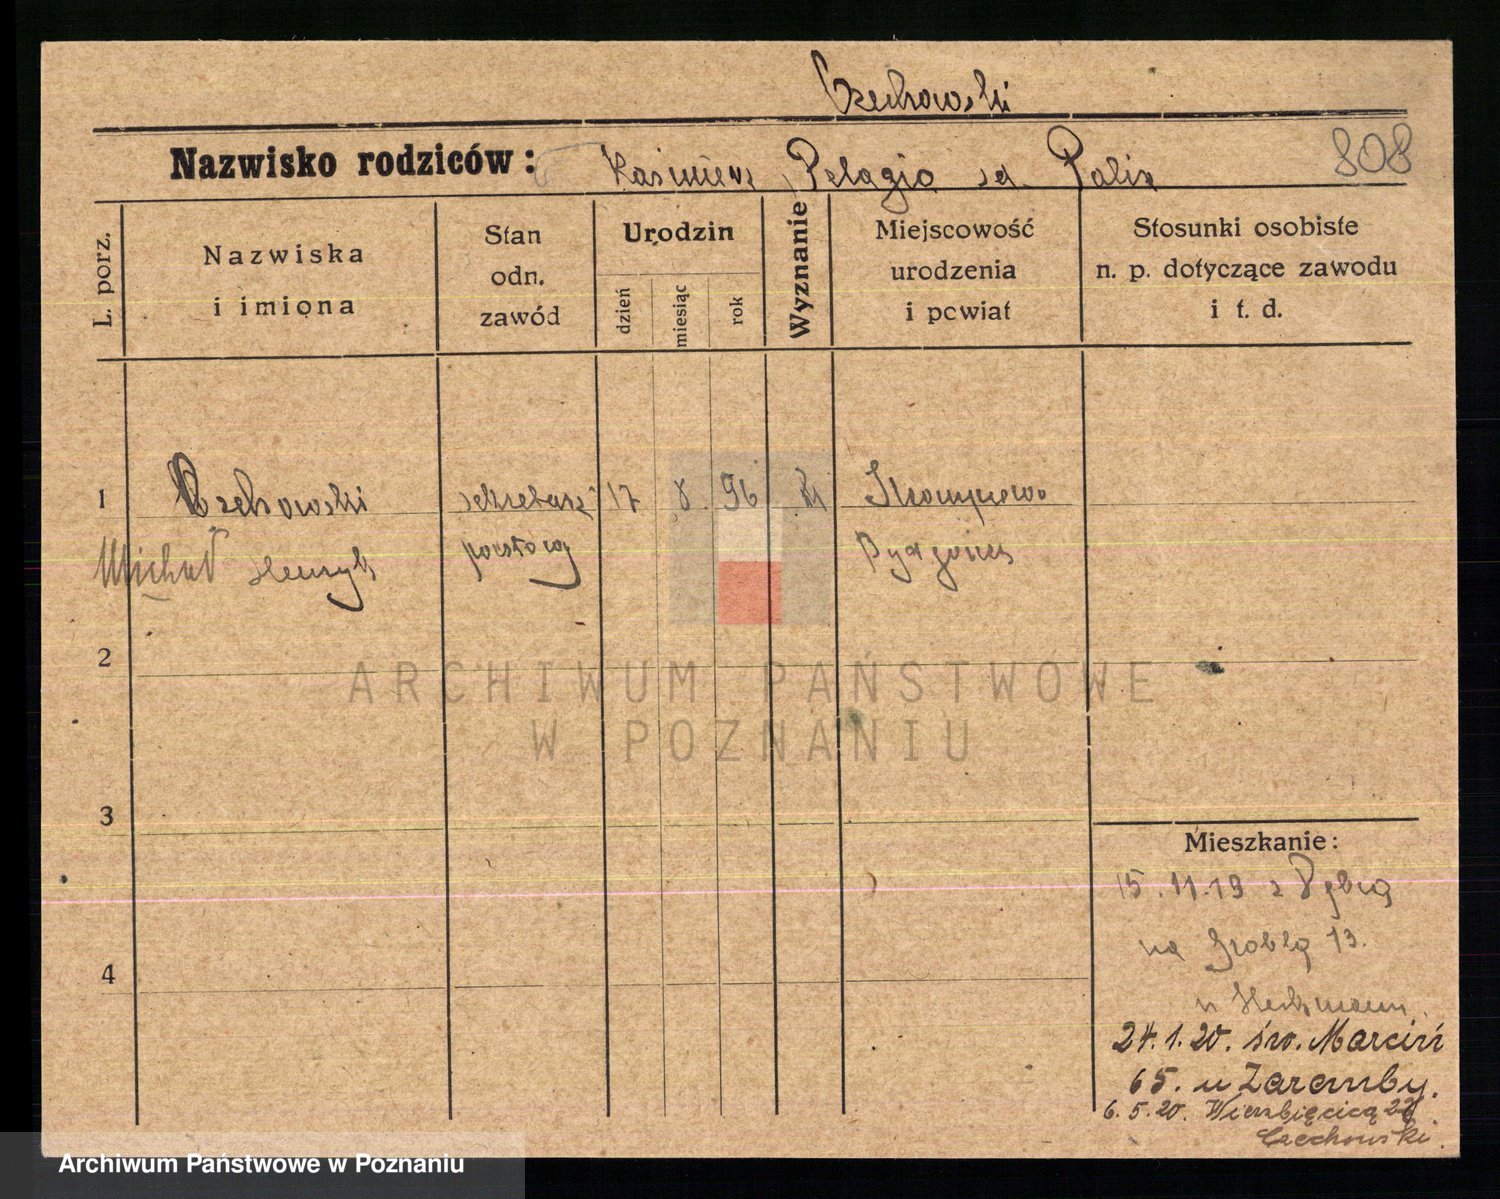 Czechowski
Nazwisko rodziców: Kasimierz, Pelagia zd. Palix
808
L. porz.
Nazwiska
i imiona
Stan
odn.
zawód
Urodzin
dzień
miesiąc
rok
Wyznanie
Miejscowość
urodzenia
i powiat
Stosunki osobiste
n. p. dotyczące zawodu
i t. d.
1
Czechowski
Michał Henryk
sekretarz
pocztowy
17
8
96
Bydgoszcz
2
3
4
Mieszkanie:
15.11.19 z
na Groblą 13.
u
24.1.20. św. Marcin
65. u Zaremby.
6.5.20. Wierzbięcicą
Czechowski.
ARCHIWUM PAŃSTWOWE
W POZNANIU
Archiwum Państwowe w Poznaniu